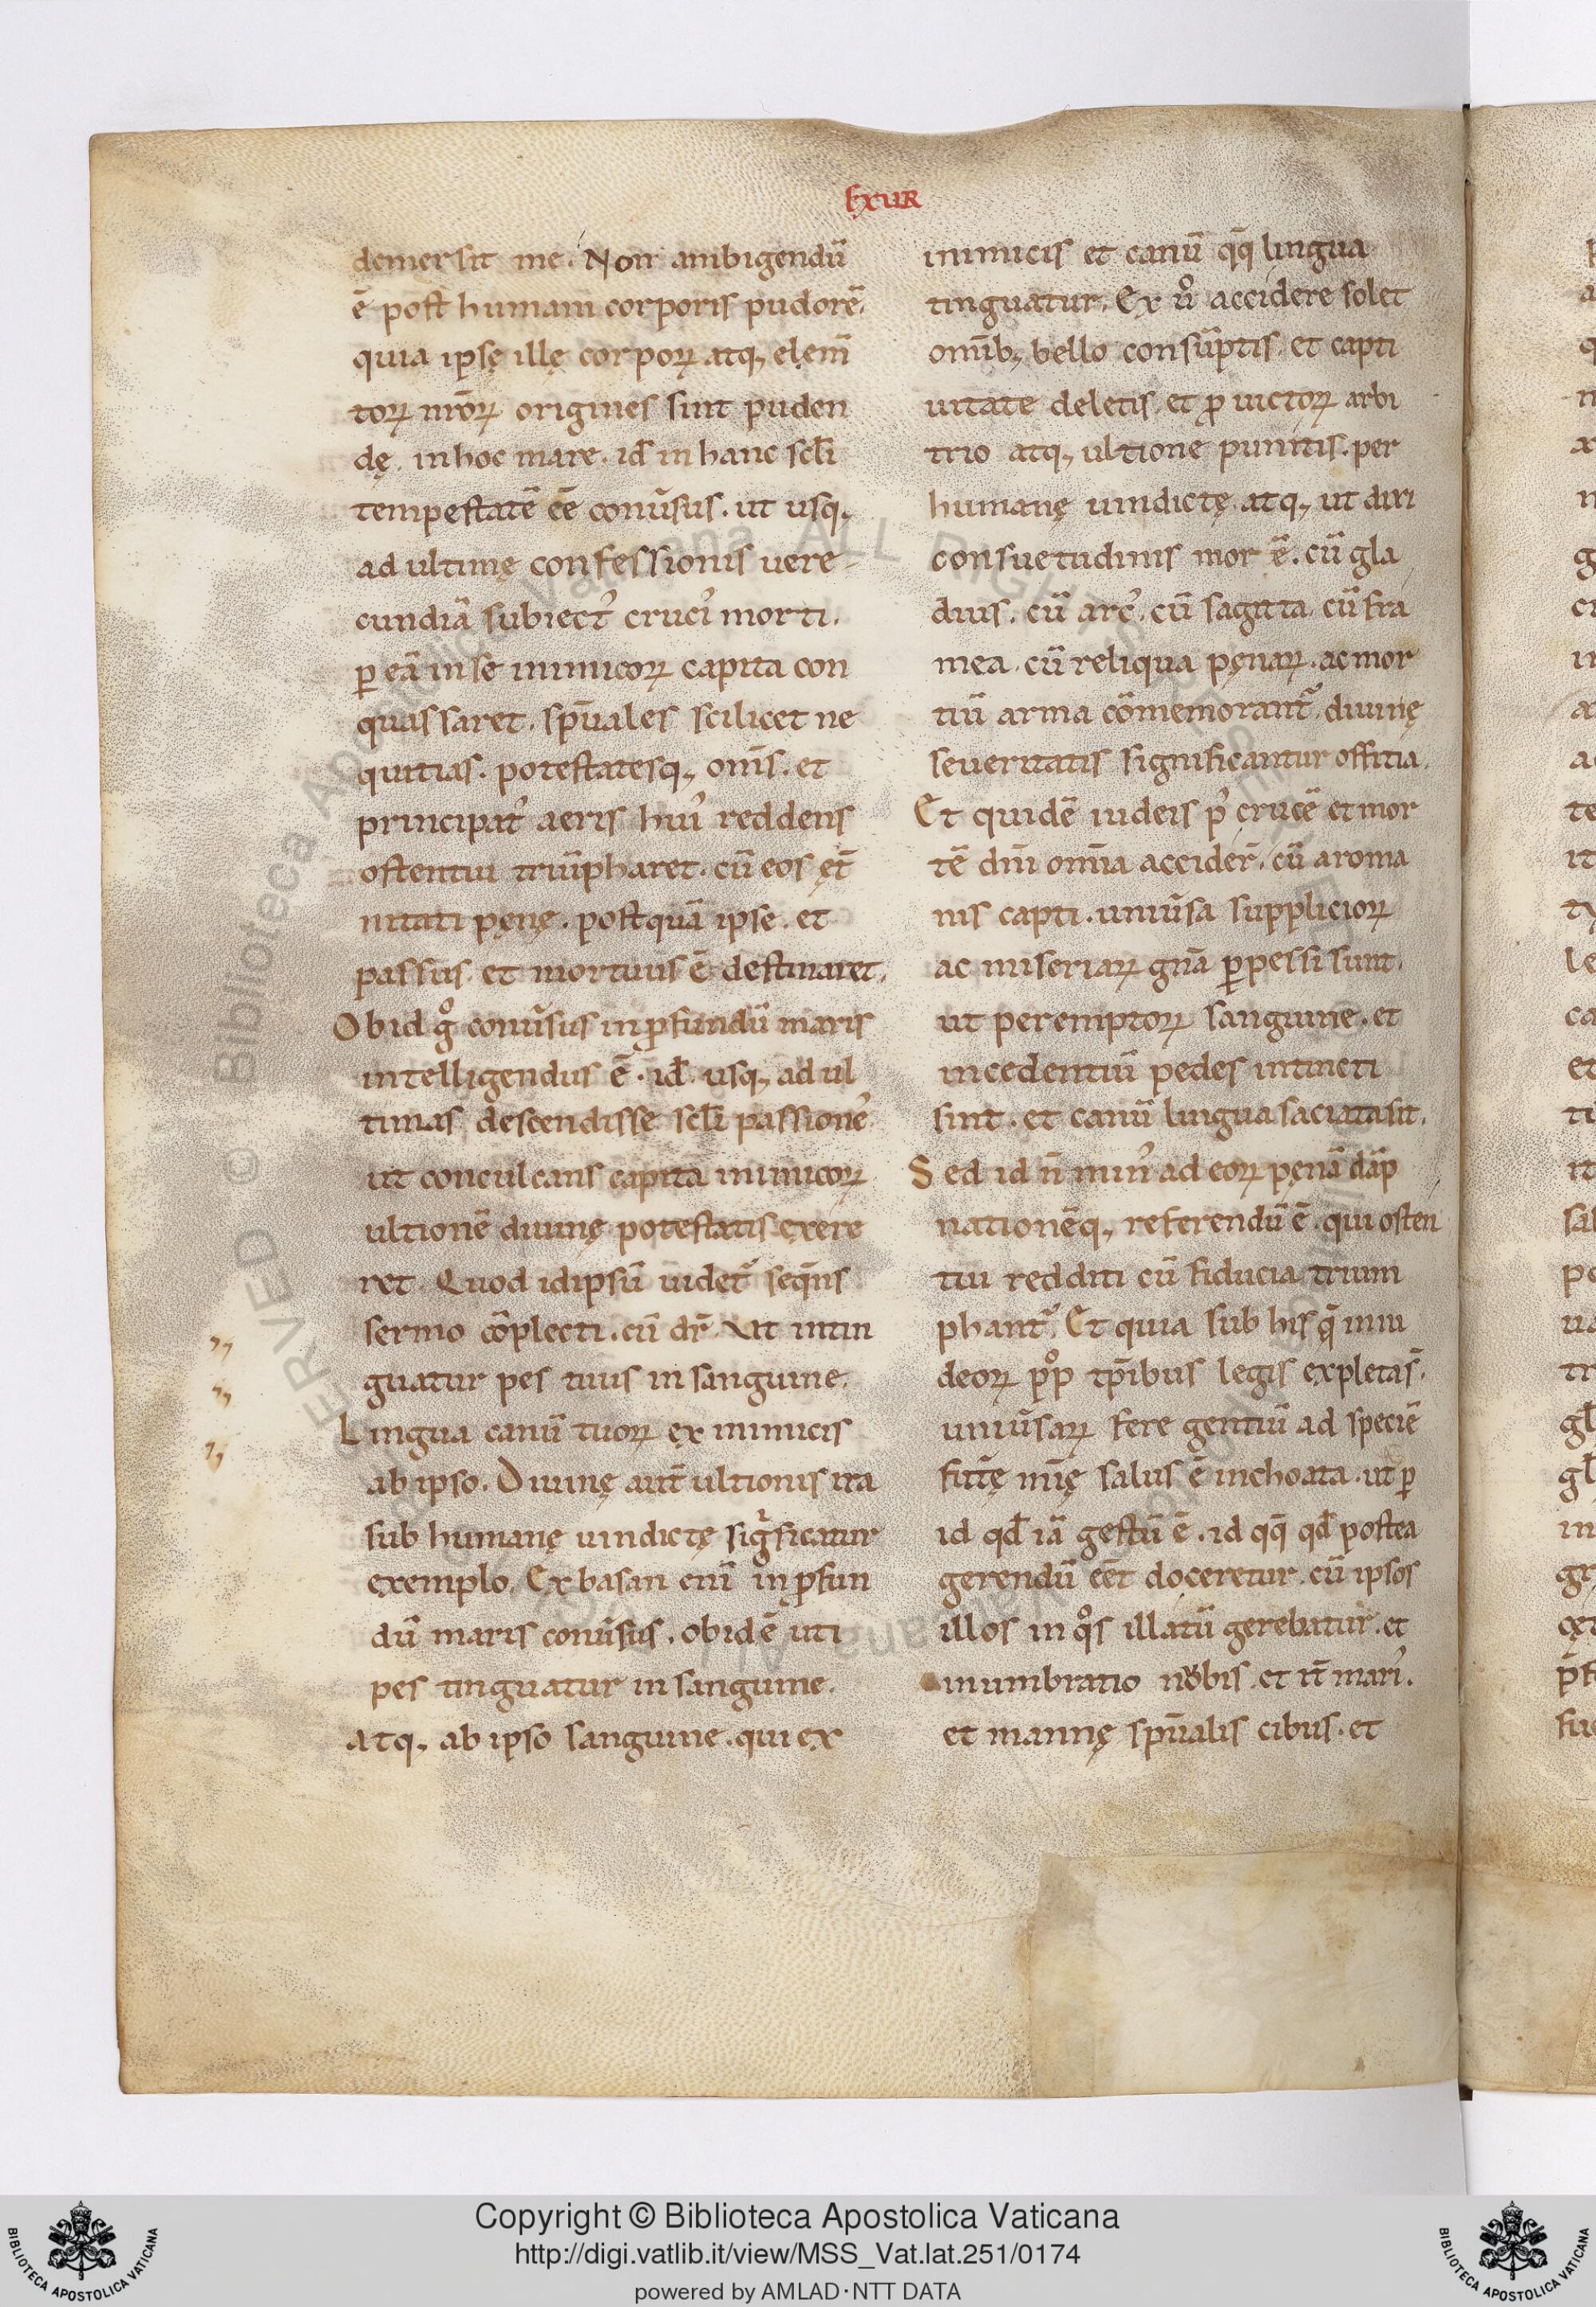 EXUR
demersit me. Non ambigendū
ē post humani corporis pudorē.
quia ipsę illę corporꝝ atq; elem̄
torꝝ nr̄orꝝ origines sint puden
dę. in hoc mare. id̄ in hanc sc̄li
tempestatē eē conūsus. ut usq;
ad ultimę confessionis uere-
cundiā subiect᾽ cruci᾽ morti.
ꝑ eā in se inimicorꝝ capita con
quassaret. sp̄uales scilicet ne
quitias. potestatesq; om̄s. et
principat᾽ aeris hui᾽ reddens
ostentui triūpharet. cū eos ęt̄
nitati pęnę. postquā ipse. et
passus et mortuus ē destinaret.
Ob id gͦ conūsus in ꝓfundū maris
intelligendus ē. id̄. usq; ad ul
timas descendisse sc̄li passione᾽
ut conculcans capita inimicorꝝ
ultionē diuinę potestatis exere
ret. Quod idipsū uidet᷑ seq̄ns
sermo cōplecti. cū dr̄. Ut intin
guatur pes tuus in sanguine.
Lingua canū tuorꝝ ex inimicis
ab ipso. Diuinę aut̄ ultionis ita
sub humanę uindictę siḡficatur
exemplo. Ex basan eni᷑ in ꝓfun
dū maris conūsus. ob id ē uti
pes tinguatur in sanguine.
atq; ab ipso sanguine. qui ex
inimicis et canū qq̄ lingua
tinguatur. Ex uͦ accidere solet
omīb; bello consūptis. et capti
uitate deletis. et ꝓ uictorꝝ arbi
trio atq; ultione punitis. per
humanę uindictę. atq; ut diri
consuetudinis mor ē. cū gla
dius. cū arc᾽. cū sagitta. cū fra
mea. cū reliqua pęnarꝝ. ac mor
tiū arma cōmemorant᷑ diuinę
seueritatis significantur offitia.
Et quidē iudeis p᾽ crucē et mor
tē dn̄i om̄ia accider̄. cū a roma
nis capti. uniūsa suppliciorꝝ
ac miseriarꝝ gn̄a ꝑpessi sunt.
ut peremptorꝝ sanguine. et
incedentiū pedes intincti
sint. et canū lingua saciata sit.
Sed id n̄ min᾽ ad eorꝝ pęnā dāp
nationēq; referendū ē. qui osten
tui redditi cū fiducia trium
phant᷑. Et quia sub his q̄ in iu
deorꝝ ppͦ tp̄ibus legis expletas̄.
uniūsarꝝ fere gentiū ad speciē
fut̄ę mīę salus ē inchoata. ut ꝑ
id qd̄ iā gestū ē. id qq̄ qd̄ postea
gerendū eēt doceretur. cū ipsos
illos in qͦs illatū gerebatur. et
inumbratio nobis. et it̄ mari᾽.
et mannę sp̄ualis cibus. et
Copyright © Biblioteca Apostolica Vaticana
http://digi.vatlib.it/view/MSS_Vat.lat.251/0174
powered by AMLAD·NTT DATA
BIBLIOTECA APOSTOLICA VATICANA
BIBLIOTECA APOSTOLICA VATICANA